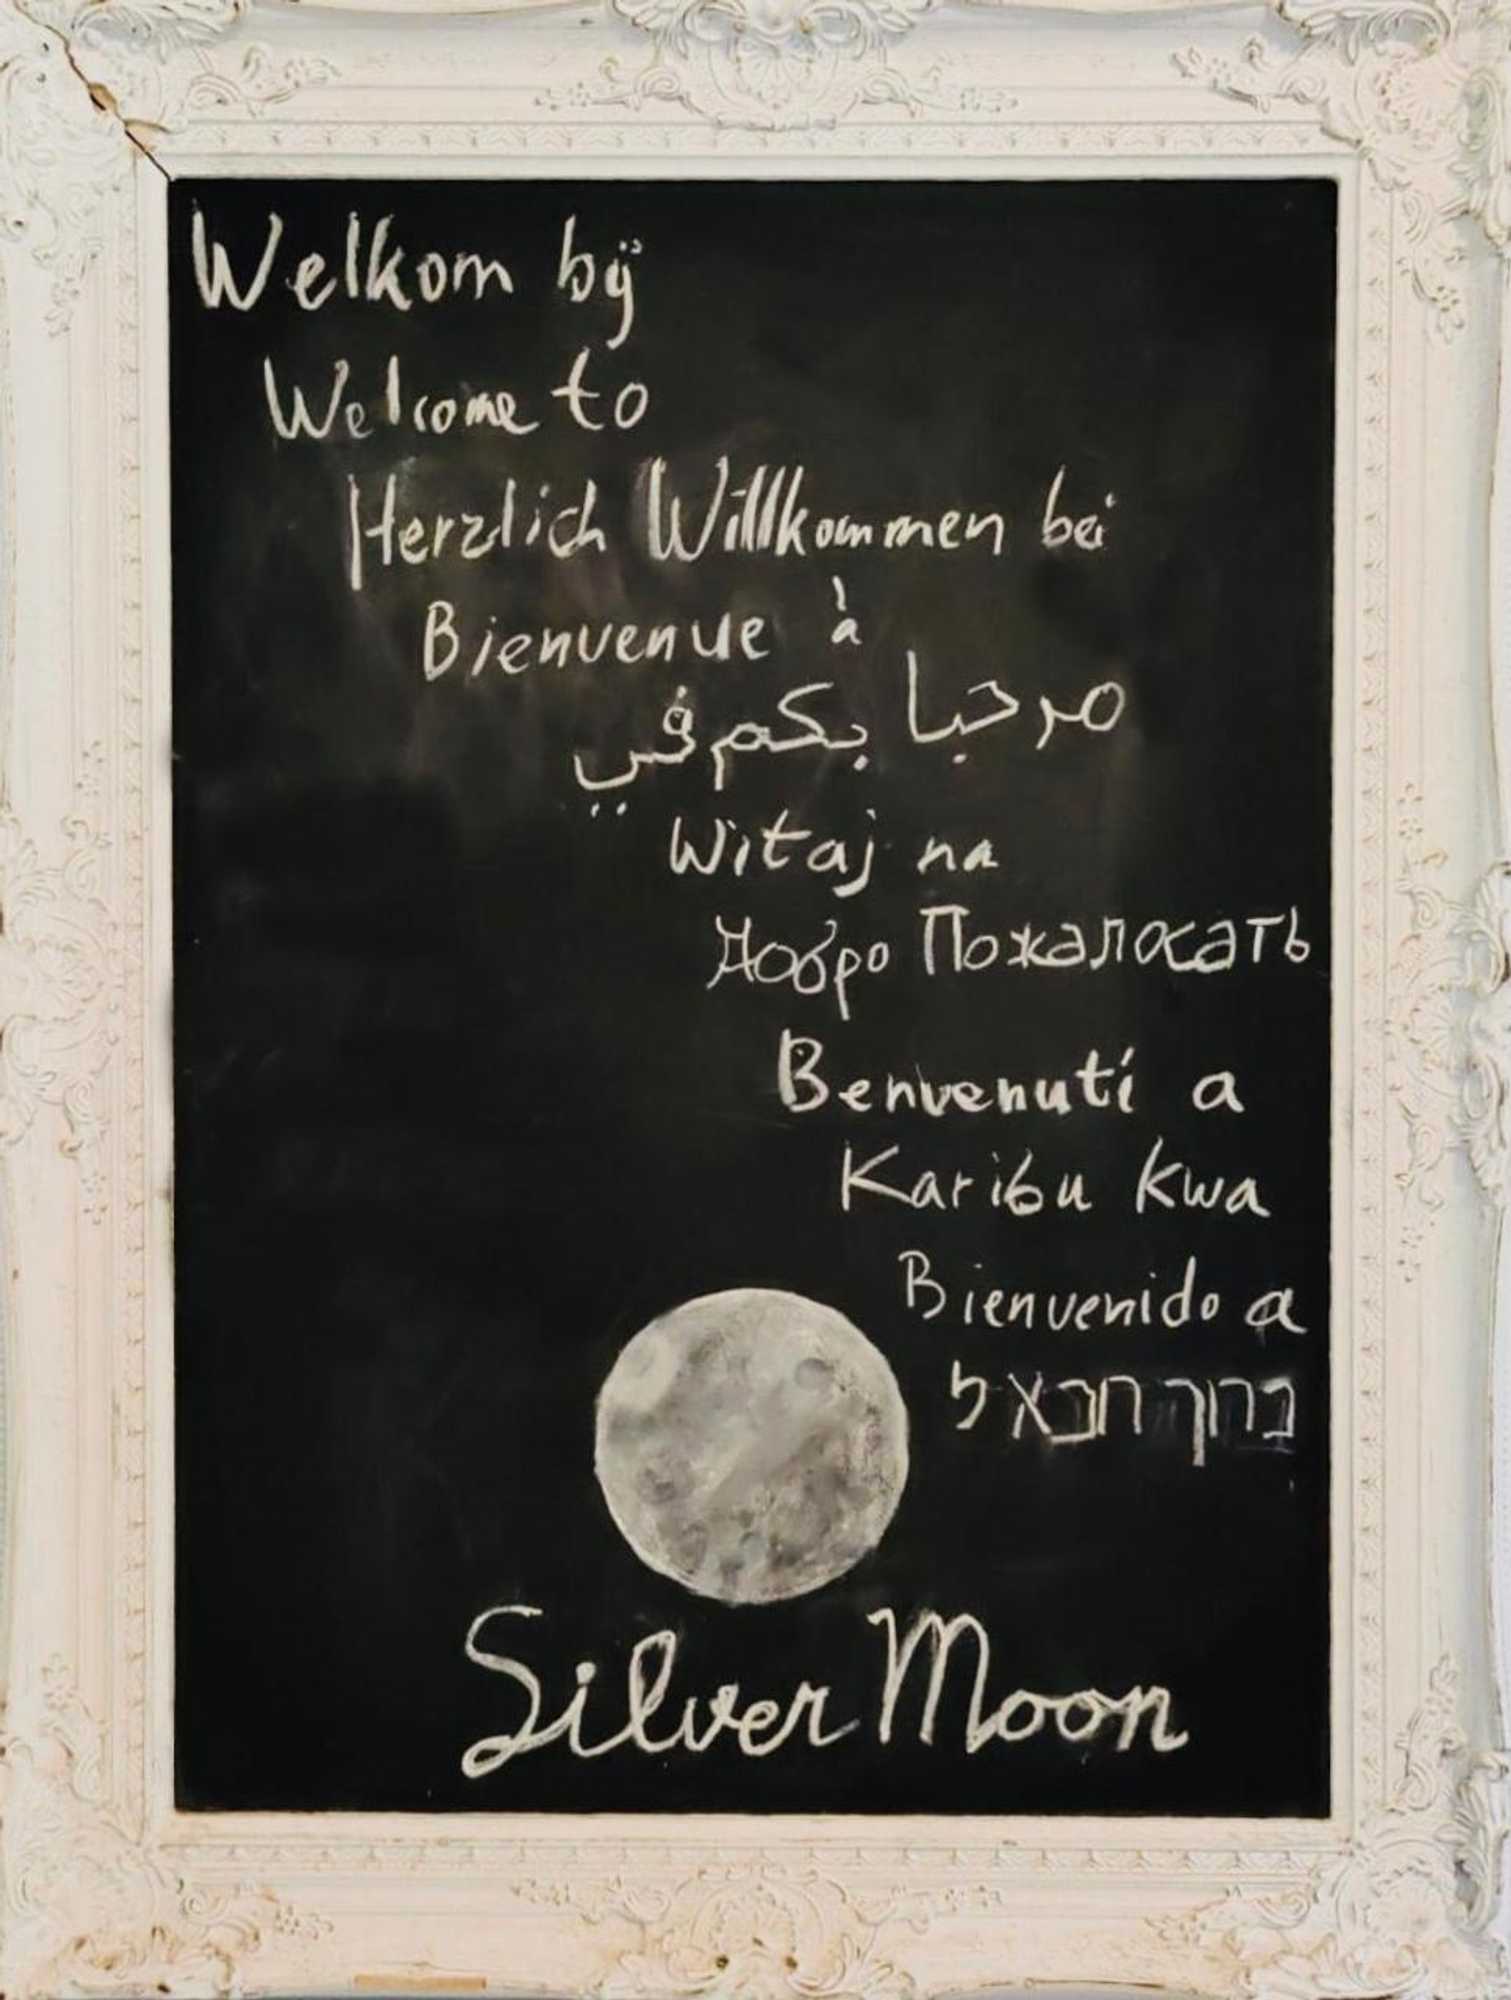 Welkom bij
Welcome to
Herzlich Willkommen bei
Bienvenue à
مرحبا بكم في
Witaj na
Добро Пожаловать
Benvenuti a
Karibu kwa
Bienvenido a
ברוך חבא ל
Silver Moon